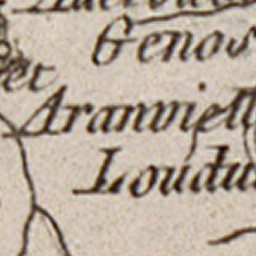 Genos
et
Aranviell
Loudu